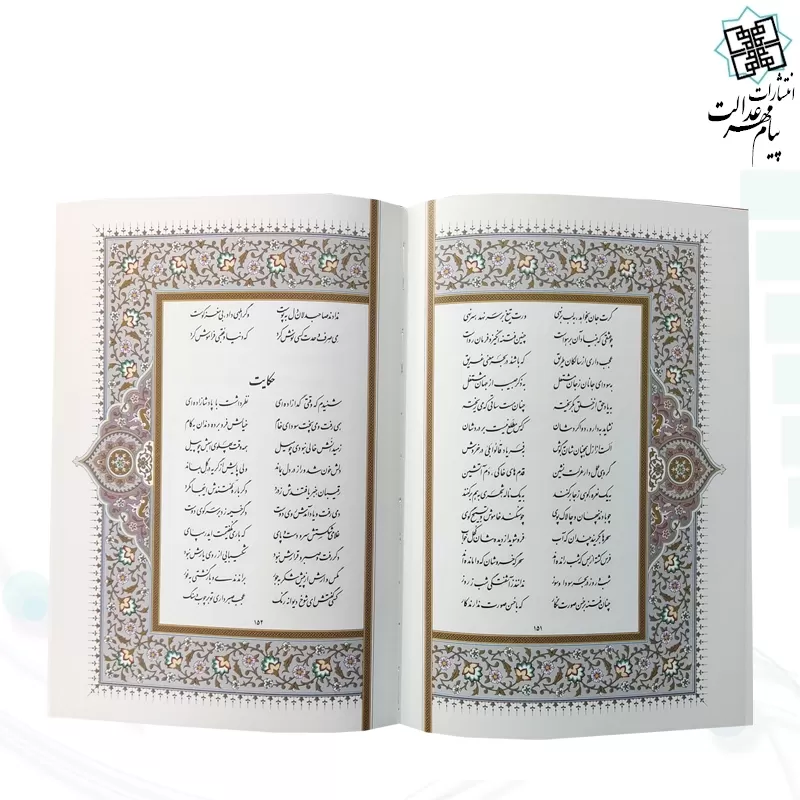 انتشارات
پیام مهر عدالت
گرت جان بخواهد به لب بر نهی ورت تیغ بر سر نهد سر نهی
چو عشقی که بنیاد آن بر هواست چنین فتنه انگیز و فرمان رواست
عجب داری از سالکان طریق که باشند در بحر معنی غریق
به سودای جانان ز جان مشتغل به ذکر حبیب از جهان مشتغل
به یاد حق از خلق بگریخته چنان مست ساقی که می ریخته
نشاید به دارو دوا کردشان که کس مطلع نیست بر دردشان
الست از ازل همچنانشان به گوش به فریاد قالوا بلی در خروش
گروهی عمل دار عزلت نشین قدم‌های خاکی، دم آتشین
به یک نعره کوهی ز جا برکنند به یک ناله شهری به هم برکنند
چو بادند پنهان و چالاک پوی چو سنگند خاموش و تسبیح گوی
سحرها بگریند چندان که آب فرو شوید از دیده‌شان کحل خواب
فرس کشته از بس که شب رانده‌اند سحرگه خروشان که وامانده‌اند
شب و روز در بحر سودا و سوز ندانند ز آشفتگی شب ز روز
چنان فتنه بر حسن صورت نگار که با حسن صورت ندارند کار
۱۵۱
ندادند صاحبدلان دل به پوست وگر ابلهی داد، بی مغز اوست
می صرف وحدت کسی نوش کرد که دنیا و عقبی فراموش کرد
حکایت
شنیدم که وقتی گدازاده‌ای نظر داشت با پادشازاده‌ای
همی رفت و می پخت سودای خام خیالش فرو برده دندان به کام
ز میدانش خالی نبودی چو میل همه وقت پهلوی اسبش چو پیل
دلش خون شد و راز در دل بماند ولی پایش از گریه در گل بماند
رقیبان خبر یافتندش ز درد دگرباره گفتندش اینجا مگرد
دمی رفت و یاد آمدش روی دوست دگر خیمه زد بر سر کوی دوست
غلامی شکستش سر و دست و پای که باری نگفتیمت ایدر مپای
دگر رفت و صبر و قرارش نبود شکیبایی از روی یارش نبود
مگس وارش از پیش شکر به جور براندندی و بازگشتی به فور
کسی گفتش ای شوخ دیوانه رنگ عجب صبر داری تو بر چوب و سنگ
۱۵۲